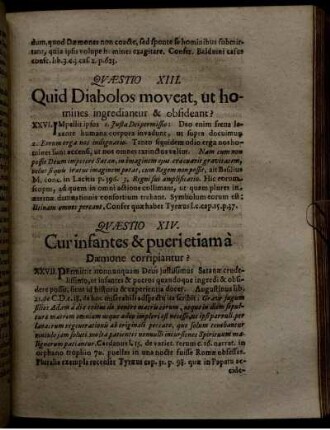 dum, quod Dæmones non coacte, sed sponte se hominibus submittant,
quia ipsis volupe homines exagitare. Confer. Balduini casus
consc. lib. 3. c. 3. cas. 2. p. 623.
QVÆSTIO XIII.
Quid Diabolos moveat, ut homines
ingrediantur & obsideant?
XXVI. Impellit ipsos 1. Justa Dei permissio: Deo enim sæva
ante humana corpora invadunt, ut supra docuimus
2. Eorum erga nos indignatio. Tanto siquidem odio erga nos homines
sunt accensi, ut nos omnes extinctos velint. Nam cum non
posset Deum impetere Satan, in imaginem ejus evacuavit gravitatem,
M. 3. Regni sui amplificatio. Hic enim
scopus, ad quem in omni actione collimant, ut quam plurimos in
æternæ damnationis consortium trahant. Symbolum eorum est:
omnes pereant. Confer quæ habet Tyræus l. c. cap. 15. p. 47.
QVÆSTIO XIV.
Cur infantes & pueri etiam à
Dæmone corripiantur?
XXVII. Permittit nonnunquam Deus justissimus Satanæ
ut infantes & pueros quandoque ingredi & obsidere
possit, sicut id historiis & experientia docet. Augustinus lib.
21. de C. D. c. 18. de hoc miserabili aspectu ita scribit: Grave jugum
filios Adam à die exitus de ventre matris eorum, usque in diem sepulturæ
in matrem omnium usque adeo impleri est necesse, ut ipsi parvuli per
lavacrum regenerationis ab originalis peccati, quo solum tenebantur
vinculo jam soluti, multa patientes nonnulli incursiones Spirituum malignorum
patiantur. Cardanus l. 15. de variet. rerum c. 76. narrat, in
orphano trophio 70. pueros in una nocte fuisse Romæ obsessos.
Pluralia exempla recenset Tyræus cap. 31. p. 98. quæ in Papatu